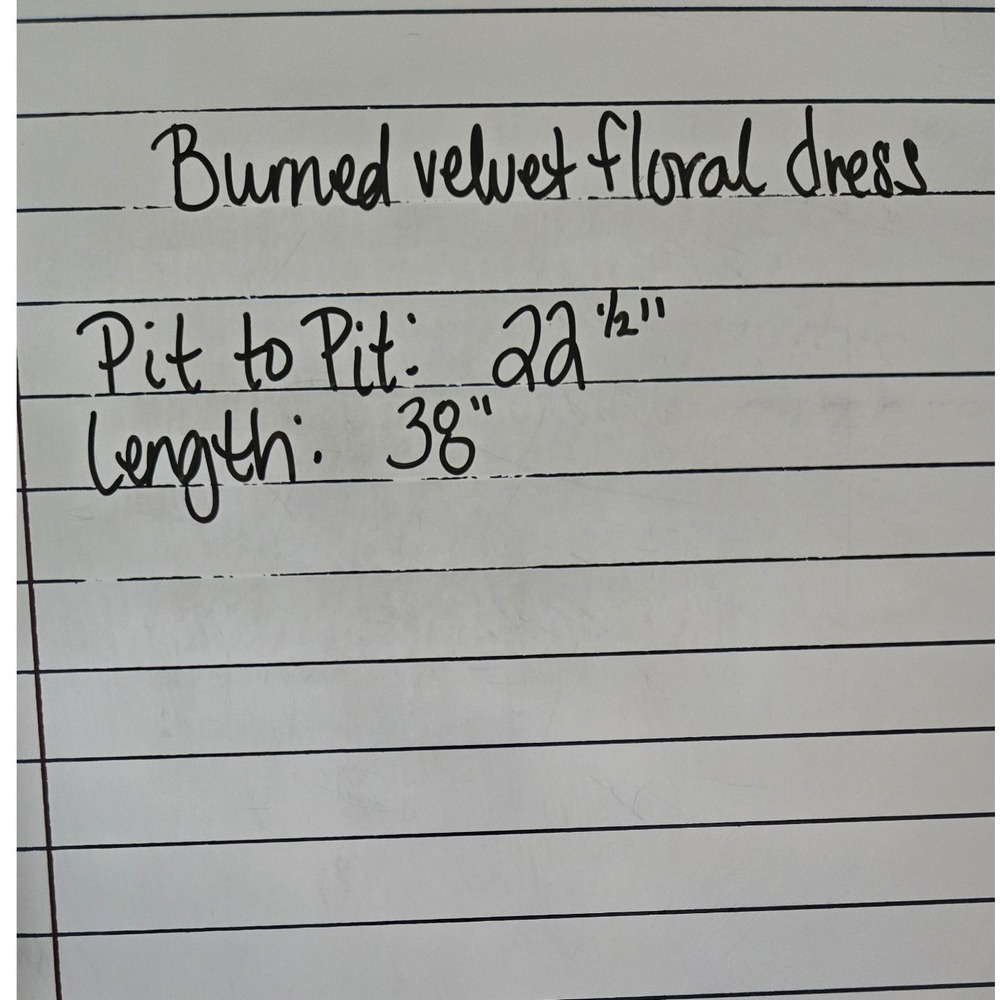 Burned velvet floral dress
Pit to Pit: 22 1/2"
Length: 38"